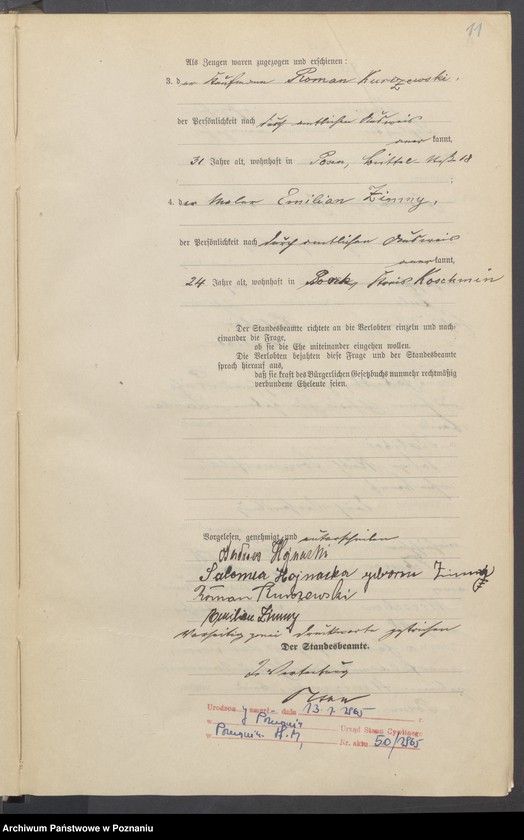 11
Als Zeugen waren zugezogen und erschienen:
3. der Kaufmann Roman Kurczewski,
der Persönlichkeit nach durch amtlichen Ausweis
anerkannt,
31 Jahre alt, wohnhaft in Posen, 18
;
4. der Maler Emilian Zimny,
der Persönlichkeit nach durch amtlichen Ausweis
anerkannt,
24 Jahre alt, wohnhaft in Borek, Kreis Koschmin
Der Standesbeamte richtete an die Verlobten einzeln und nach-
einander die Frage,
ob sie die Ehe miteinander eingehen wollen.
Die Verlobten bejahten diese Frage und der Standesbeamte
sprach hierauf aus,
daß sie kraft des Bürgerlichen Gesetzbuchs nunmehr rechtmäßig
verbundene Eheleute seien.
Vorgelesen, genehmigt und unterschrieben
Hojnacki
Salomea Hojnacka geborene Zimny
Roman Kurczewski
Emilian Zimny
Vorseitig zwei Druckworte gestrichen
Der Standesbeamte.
In Vertretung
Urodzon y zmarł dnia 13.7.1965 r.
w Poznaniu Urząd Stanu Cywilnego
w Poznaniu Nr. aktu 50/1965
Archiwum Państwowe w Poznaniu